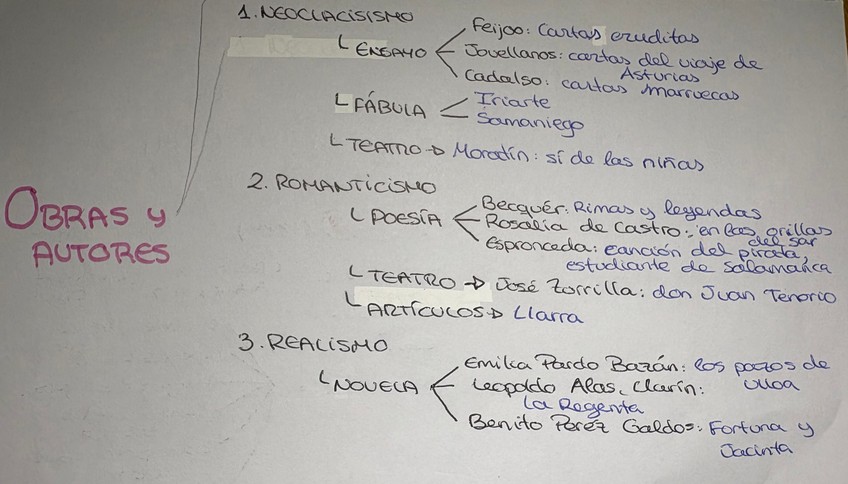 OBRAS Y
AUTORES
1. NEOCLACISISMO
ENSAYO
Feijoo: Cartas eruditas
Jovellanos: cartas del viaje de
Asturias
Cadalso: cartas marruecas
FÁBULA
Iriarte
Samaniego
TEATRO → Moratín: sí de las niñas
2. ROMANTICISMO
POESÍA
Becquér: Rimas y leyendas
Rosalía de Castro: en las orillas
del sar
Espronceda: canción del pirata,
estudiante de Salamanca
TEATRO → José Zorrilla: don Juan Tenorio
ARTÍCULOS → Llarra
3. REALISMO
NOVELA
Emilia Pardo Bazán: los pazos de
Ulloa
Leopoldo Alas, Clarín:
La Regenta
Benito Pérez Galdos: Fortuna y
Jacinta